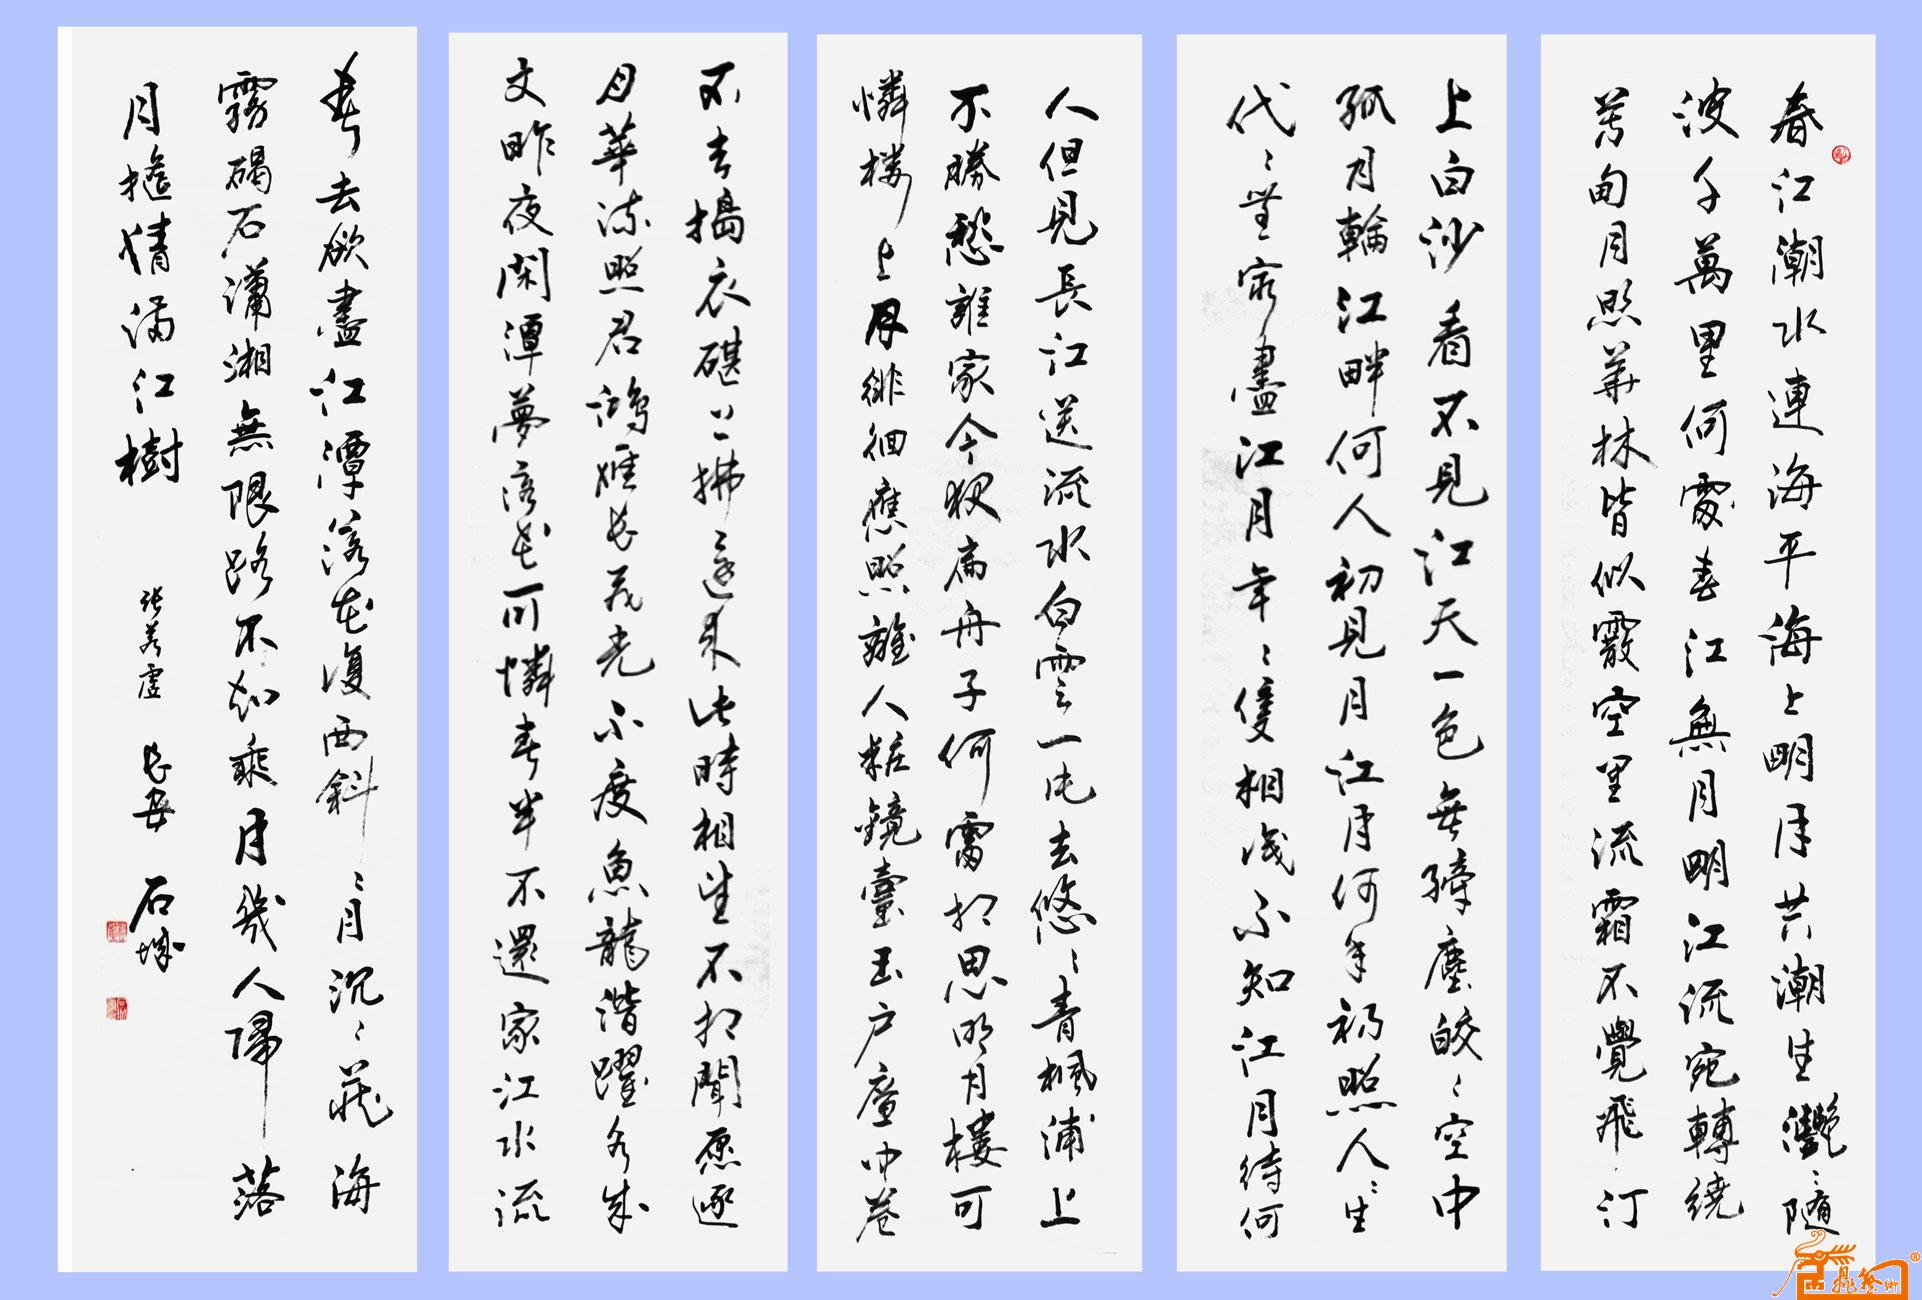 春江潮水連海平海上明月共潮生灧〻隨
波千萬里何處春江無月明江流宛轉繞
芳甸月照華林皆似霰空里流霜不覺飛汀
上白沙看不見江天一色無纖塵皎〻空中
孤月輪江畔何人初見月江月何年初照人〻生
代〻無窮盡江月年〻隻相似不知江月待何
人但見長江送流水白雲一片去悠〻青楓浦上
不勝愁誰家今夜扁舟子何處相思明月樓可
憐楼上月徘徊應照離人粧鏡臺玉户簾中卷
不去搗衣碪上拂還来此時相望不相聞愿逐
月華流照君鴻雁長飛光不度魚龍潛躍水成
文昨夜閑潭夢落花可憐春半不還家江水流
春去欲盡江潭落花復西斜〻月沉〻藏海
霧碣石瀟湘無限路不知乘月幾人歸落
月搖情滿江樹 張若虛 長安 石城